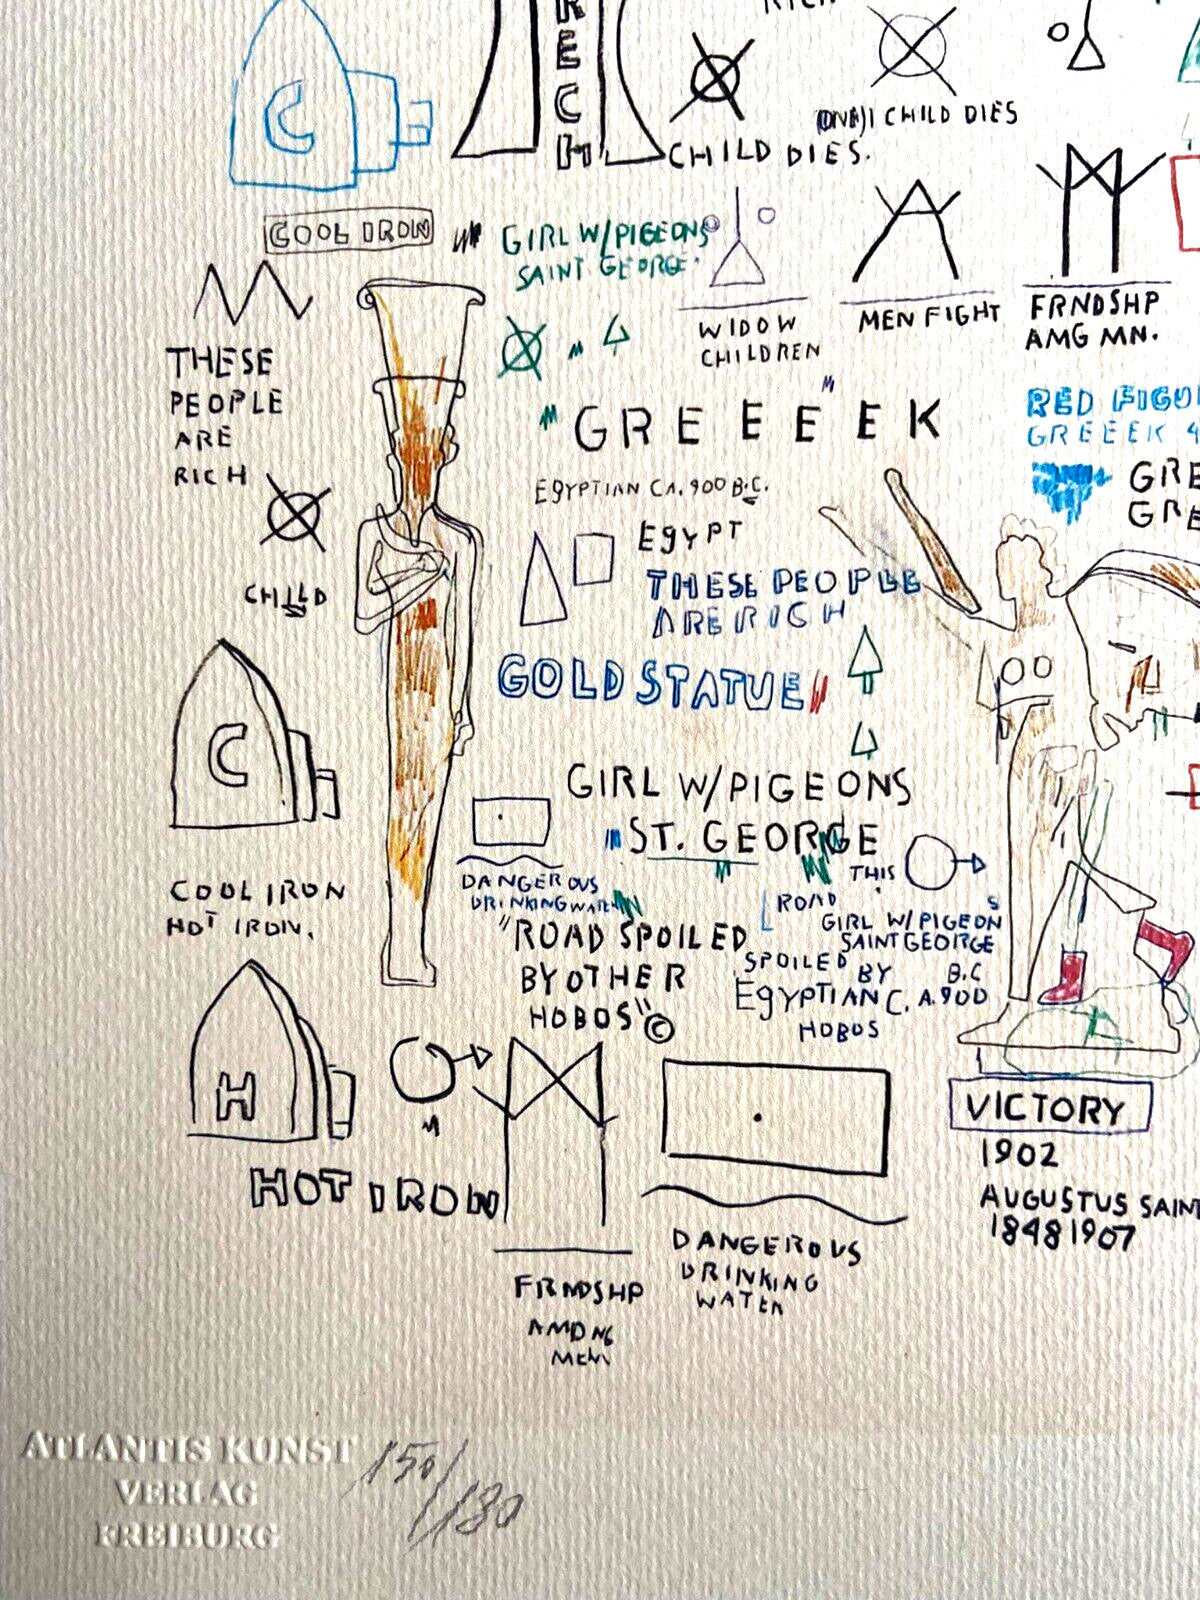 RECH
C
CHILD DIES.
CHILD DIES
COOL IRON
GIRL W/PIGEONS
SAINT GEORGE.
WIDOW
CHILDREN
MEN FIGHT
FRNDSHP
AMG MN.
THESE
PEOPLE
ARE
RICH
"GREEE"EK
RED FIGU
GREEEK 4
GRE
GRE
EGYPTIAN CA. 900 B.C.
EGYPT
THESE PEOPLE
ARE RICH
CHILD
GOLD STATUE
C
GIRL W/PIGEONS
ST. GEORGE
THIS
COOL IRON
HOT IRON.
DANGEROUS
DRINKING WATER
ROAD
GIRL W/PIGEON S
SAINT GEORGE
"ROAD SPOILED
BY OTHER
HOBOS" ©
SPOILED BY B.C
EGYPTIAN C. A. 900
HOBOS
H
HOT IRON
VICTORY
1902
AUGUSTUS SAINT
1848 1907
FRNDSHP
AMONG
MEN
DANGEROUS
DRINKING
WATER
ATLANTIS KUNST
VERLAG
FREIBURG
150/180